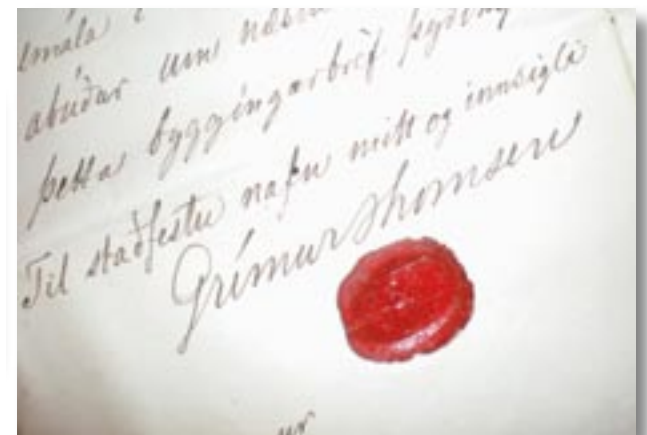 tmála
ábúðar um næstu
þetta byggingarbréf þýðing
Til staðfestu nafn mitt og innsigli
Grímur Thomsen
ur